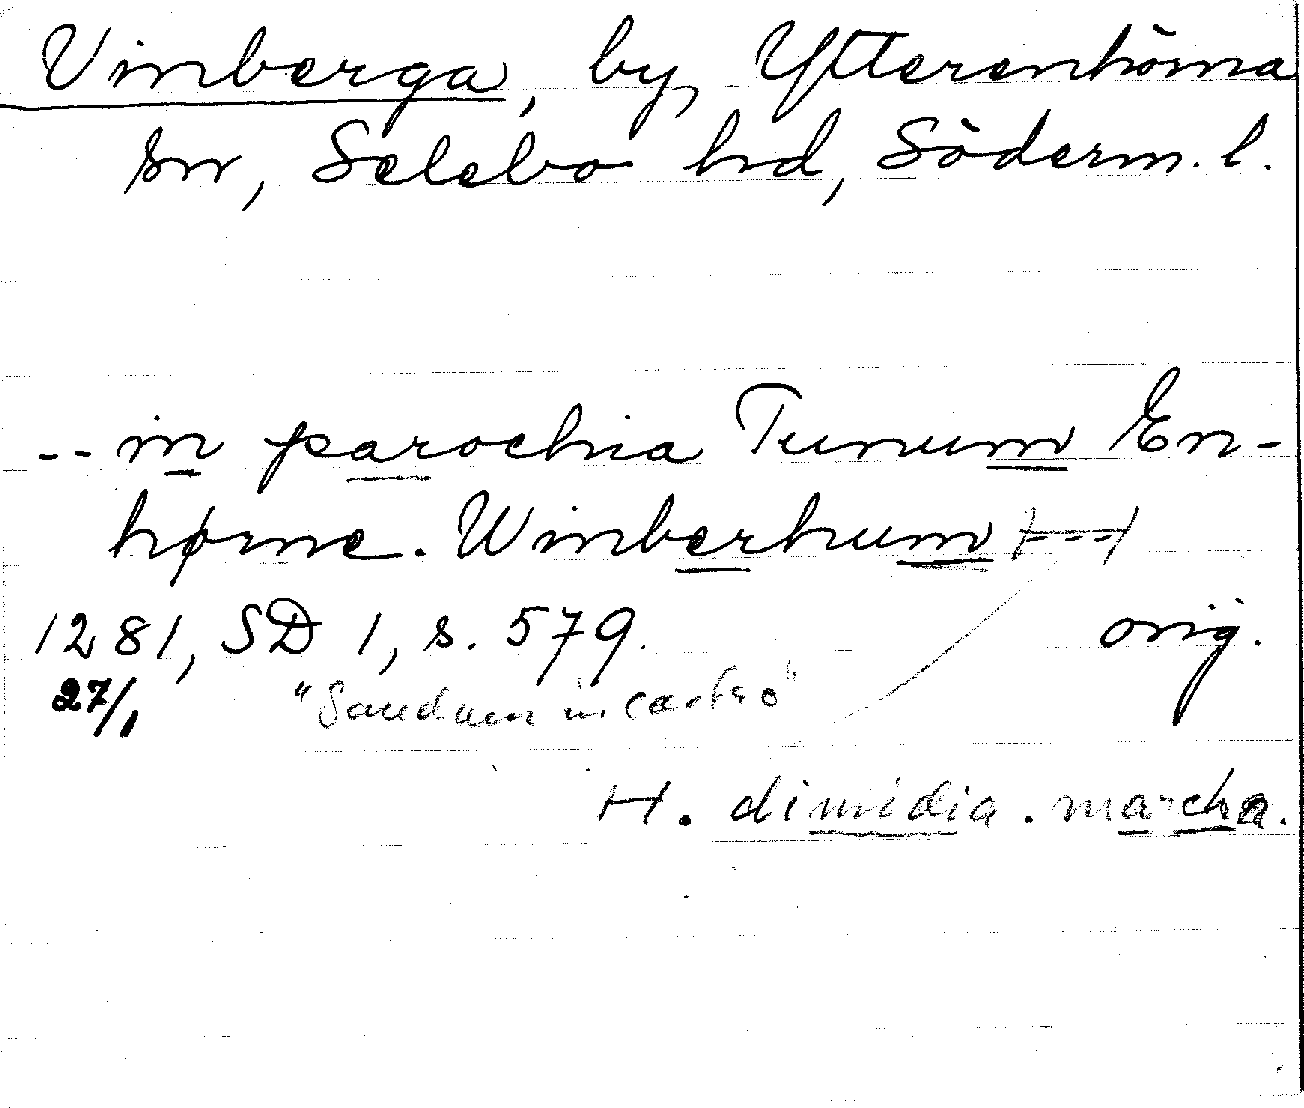 Vinberga, by, Ytterenhörna
sn, Selebo hd, Söderm. l.
-- in parochia Tunum En-
hørne. Winberhum
1281, SD 1, s. 579. orig.
27/1 "Saudum in castro"
H. dimidia. marcha.